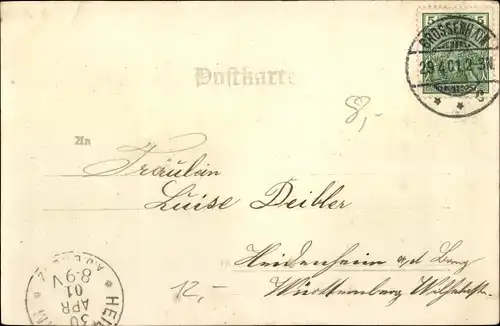 5 5
GROSSENHAIN
29.4.01.2-3N.
* * c
Postkarte
8,-
An
Fräulein
Luise Deibler
Heidenheim a/d Brenz
Württemberg
12,-
HEI
30
APR
01
8-9V